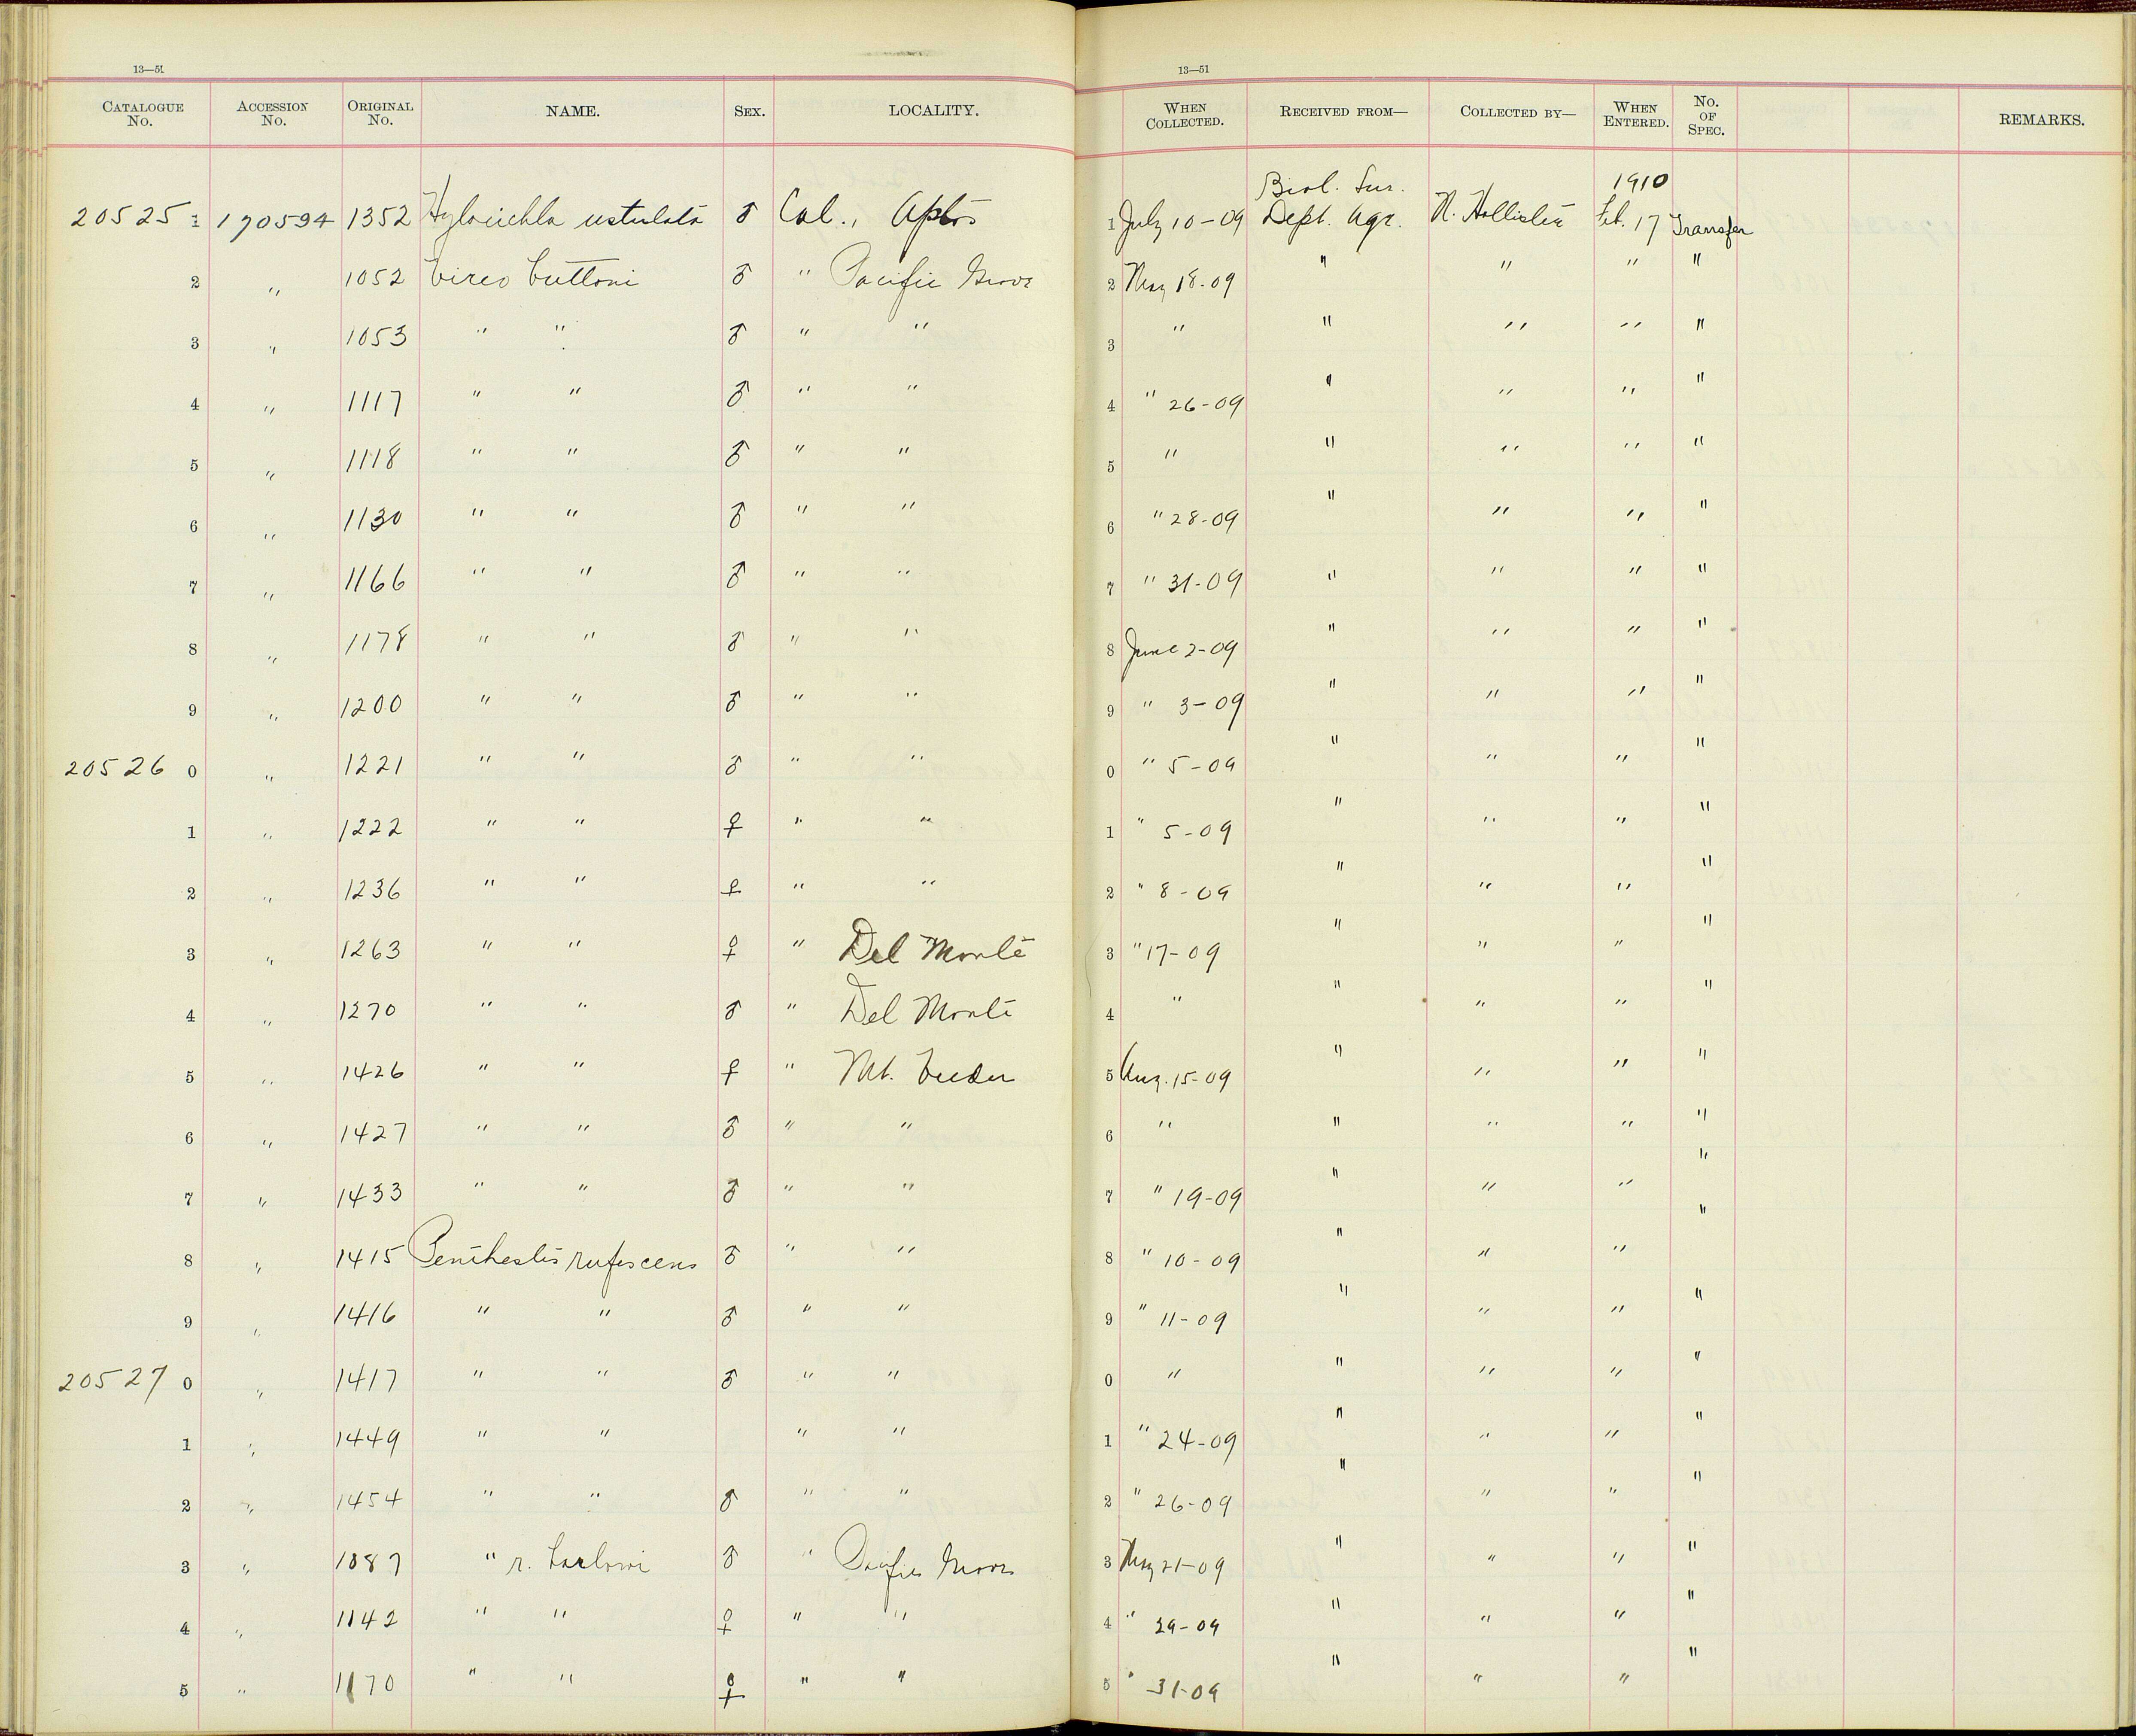 13—51 13—51
CATALOGUE No. ACCESSION No. ORIGINAL No. NAME. SEX. LOCALITY. WHEN COLLECTED. RECEIVED FROM— COLLECTED BY— WHEN ENTERED. No. OF SPEC. REMARKS.
Biol. Sur. 1910
20525 1 170594 1352 Hylocichla ustulata ♂ Cal., Aptos 1 July 10-09 Dept. Agr. N. Hollister Feb. 17 Transfer
2 " 1052 Vireo huttoni ♂ " Pacific Grove 2 May 18-09 " " " "
3 " 1053 " " ♂ " " 3 " " " " "
4 " 1117 " " ♂ " " 4 " 26-09 " " " "
5 " 1118 " " ♂ " " 5 " " " " "
6 " 1130 " " ♂ " " 6 " 28-09 " " " "
7 " 1166 " " ♂ " " 7 " 31-09 " " " "
8 " 1178 " " ♂ " " 8 June 2-09 " " " "
9 " 1200 " " ♂ " " 9 " 3-09 " " " "
20526 0 " 1221 " " ♂ " " 0 " 5-09 " " " "
1 " 1222 " " ♀ " " 1 " 5-09 " " " "
2 " 1236 " " ♀ " " 2 " 8-09 " " " "
3 " 1263 " " ♀ " Del Monte 3 " 17-09 " " " "
4 " 1270 " " ♂ " Del Monte 4 " " " " "
5 " 1426 " " ♀ " Mt. Veeder 5 Aug. 15-09 " " " "
6 " 1427 " " ♂ " " 6 " " " " "
7 " 1433 " " ♂ " " 7 " 19-09 " " " "
8 " 1415 Penthestes rufescens ♂ " " 8 " 10-09 " " " "
9 " 1416 " " ♂ " " 9 " 11-09 " " " "
20527 0 " 1417 " " ♂ " " 0 " " " " "
1 " 1449 " " " " 1 " 24-09 " " " "
2 " 1454 " " ♂ " " 2 " 26-09 " " " "
3 " 1087 " r. barlowi ♂ " Pacific Grove 3 May 21-09 " " " "
4 " 1142 " " ♀ " " 4 " 29-09 " " " "
5 " 1170 " " ♀ " " 5 " 31-09 " " " "